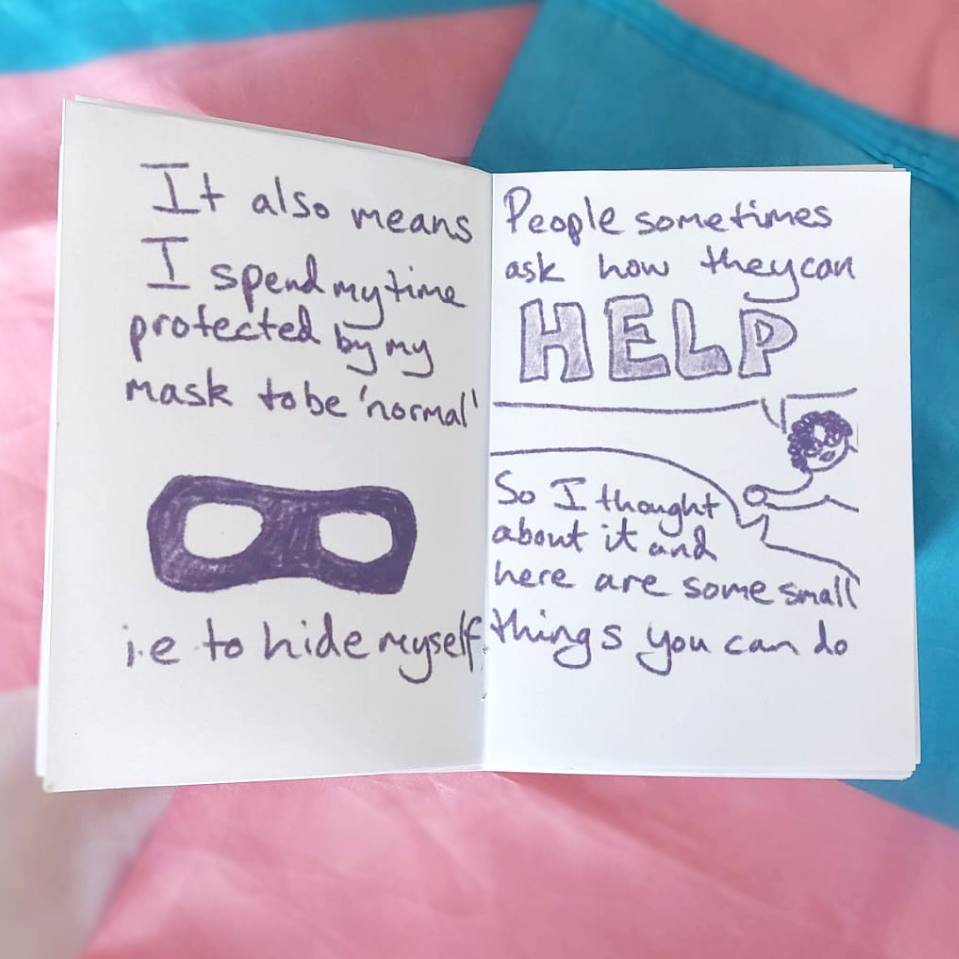 It also means
I spend my time
protected by my
mask to be 'normal'
i.e to hide myself
People sometimes
ask how they can
HELP
So I thought
about it and
here are some small
things you can do